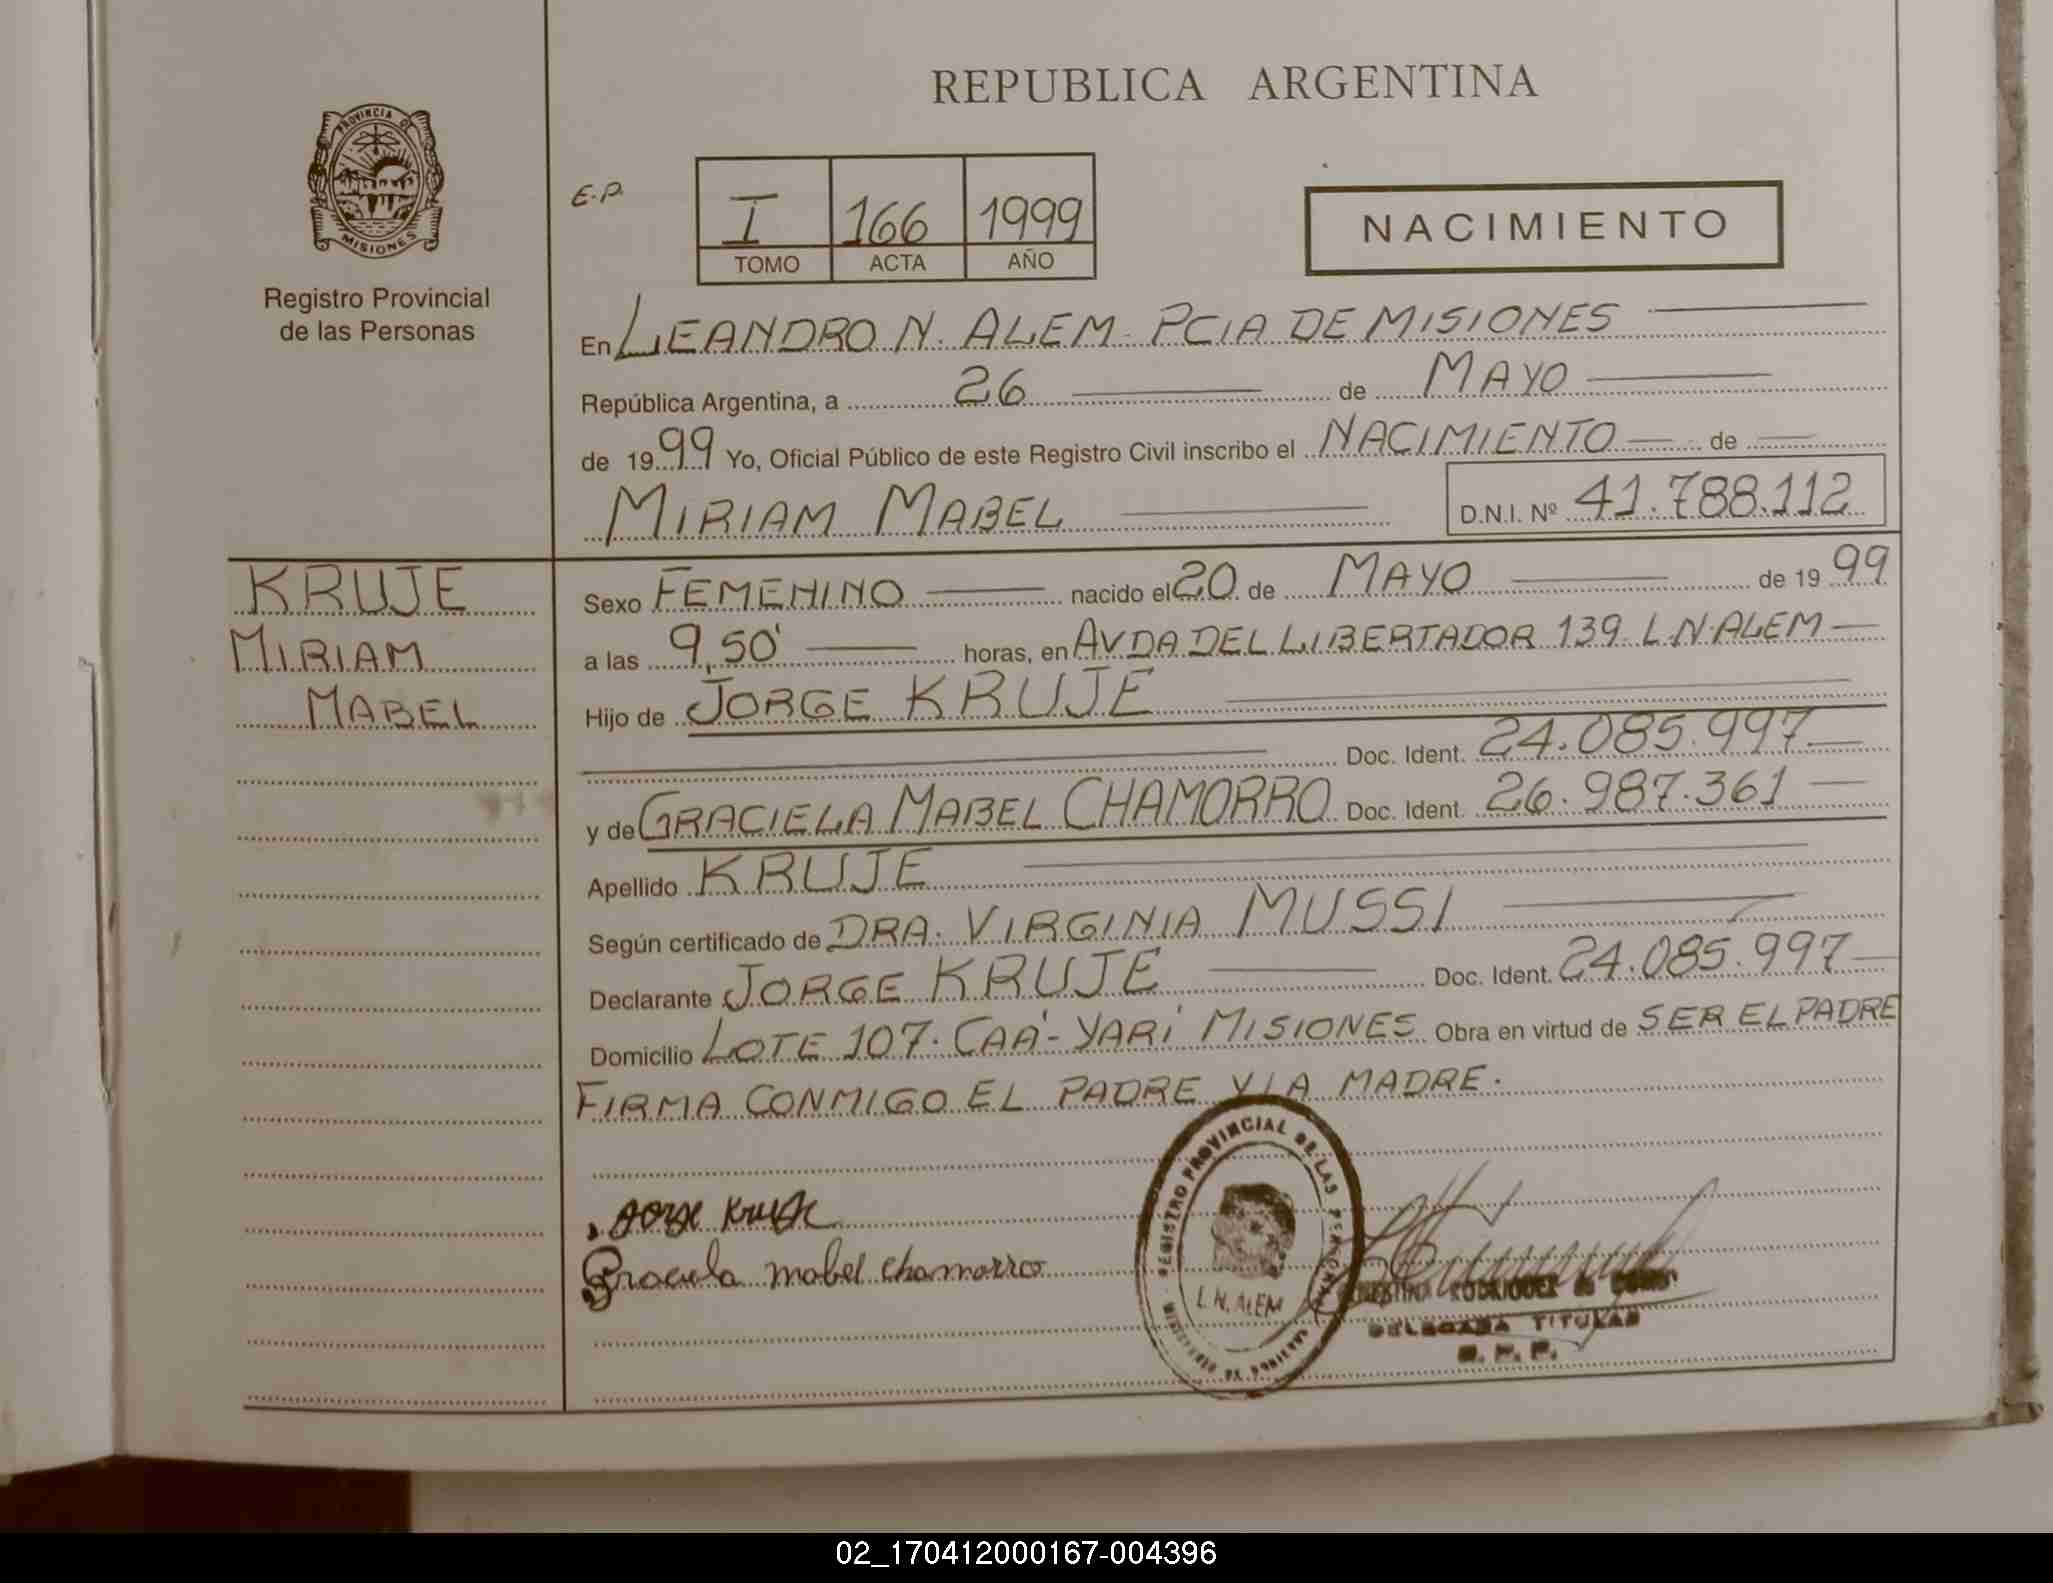 REPUBLICA ARGENTINA
PROVINCIA DE
MISIONES
Registro Provincial
de las Personas
E.P.
I 166 1999
TOMO ACTA AÑO
NACIMIENTO
En LEANDRO N. ALEM - PCIA DE MISIONES
República Argentina, a 26 de MAYO
de 1999 Yo, Oficial Público de este Registro Civil inscribo el NACIMIENTO de
MIRIAM MABEL D.N.I. Nº 41.788.112
KRUJE
MIRIAM
MABEL
Sexo FEMENINO nacido el 20 de MAYO de 1999
a las 9,50' horas, en AVDA DEL LIBERTADOR 139 L.N.ALEM
Hijo de JORGE KRUJE
Doc. Ident. 24.085.997
y de GRACIELA MABEL CHAMORRO Doc. Ident. 26.987.361
Apellido KRUJE
Según certificado de DRA. VIRGINIA MUSSI
Declarante JORGE KRUJE Doc. Ident. 24.085.997
Domicilio LOTE 107. CAÁ-YARÍ MISIONES Obra en virtud de SER EL PADRE
FIRMA CONMIGO EL PADRE Y LA MADRE.
Jorge Kruje
Graciela mabel chamorro
REGISTRO PROVINCIAL DE LAS PERSONAS
L.N. ALEM
RODRIGUEZ de
DELEGADA TITULAR
R. P. P.
02_170412000167-004396